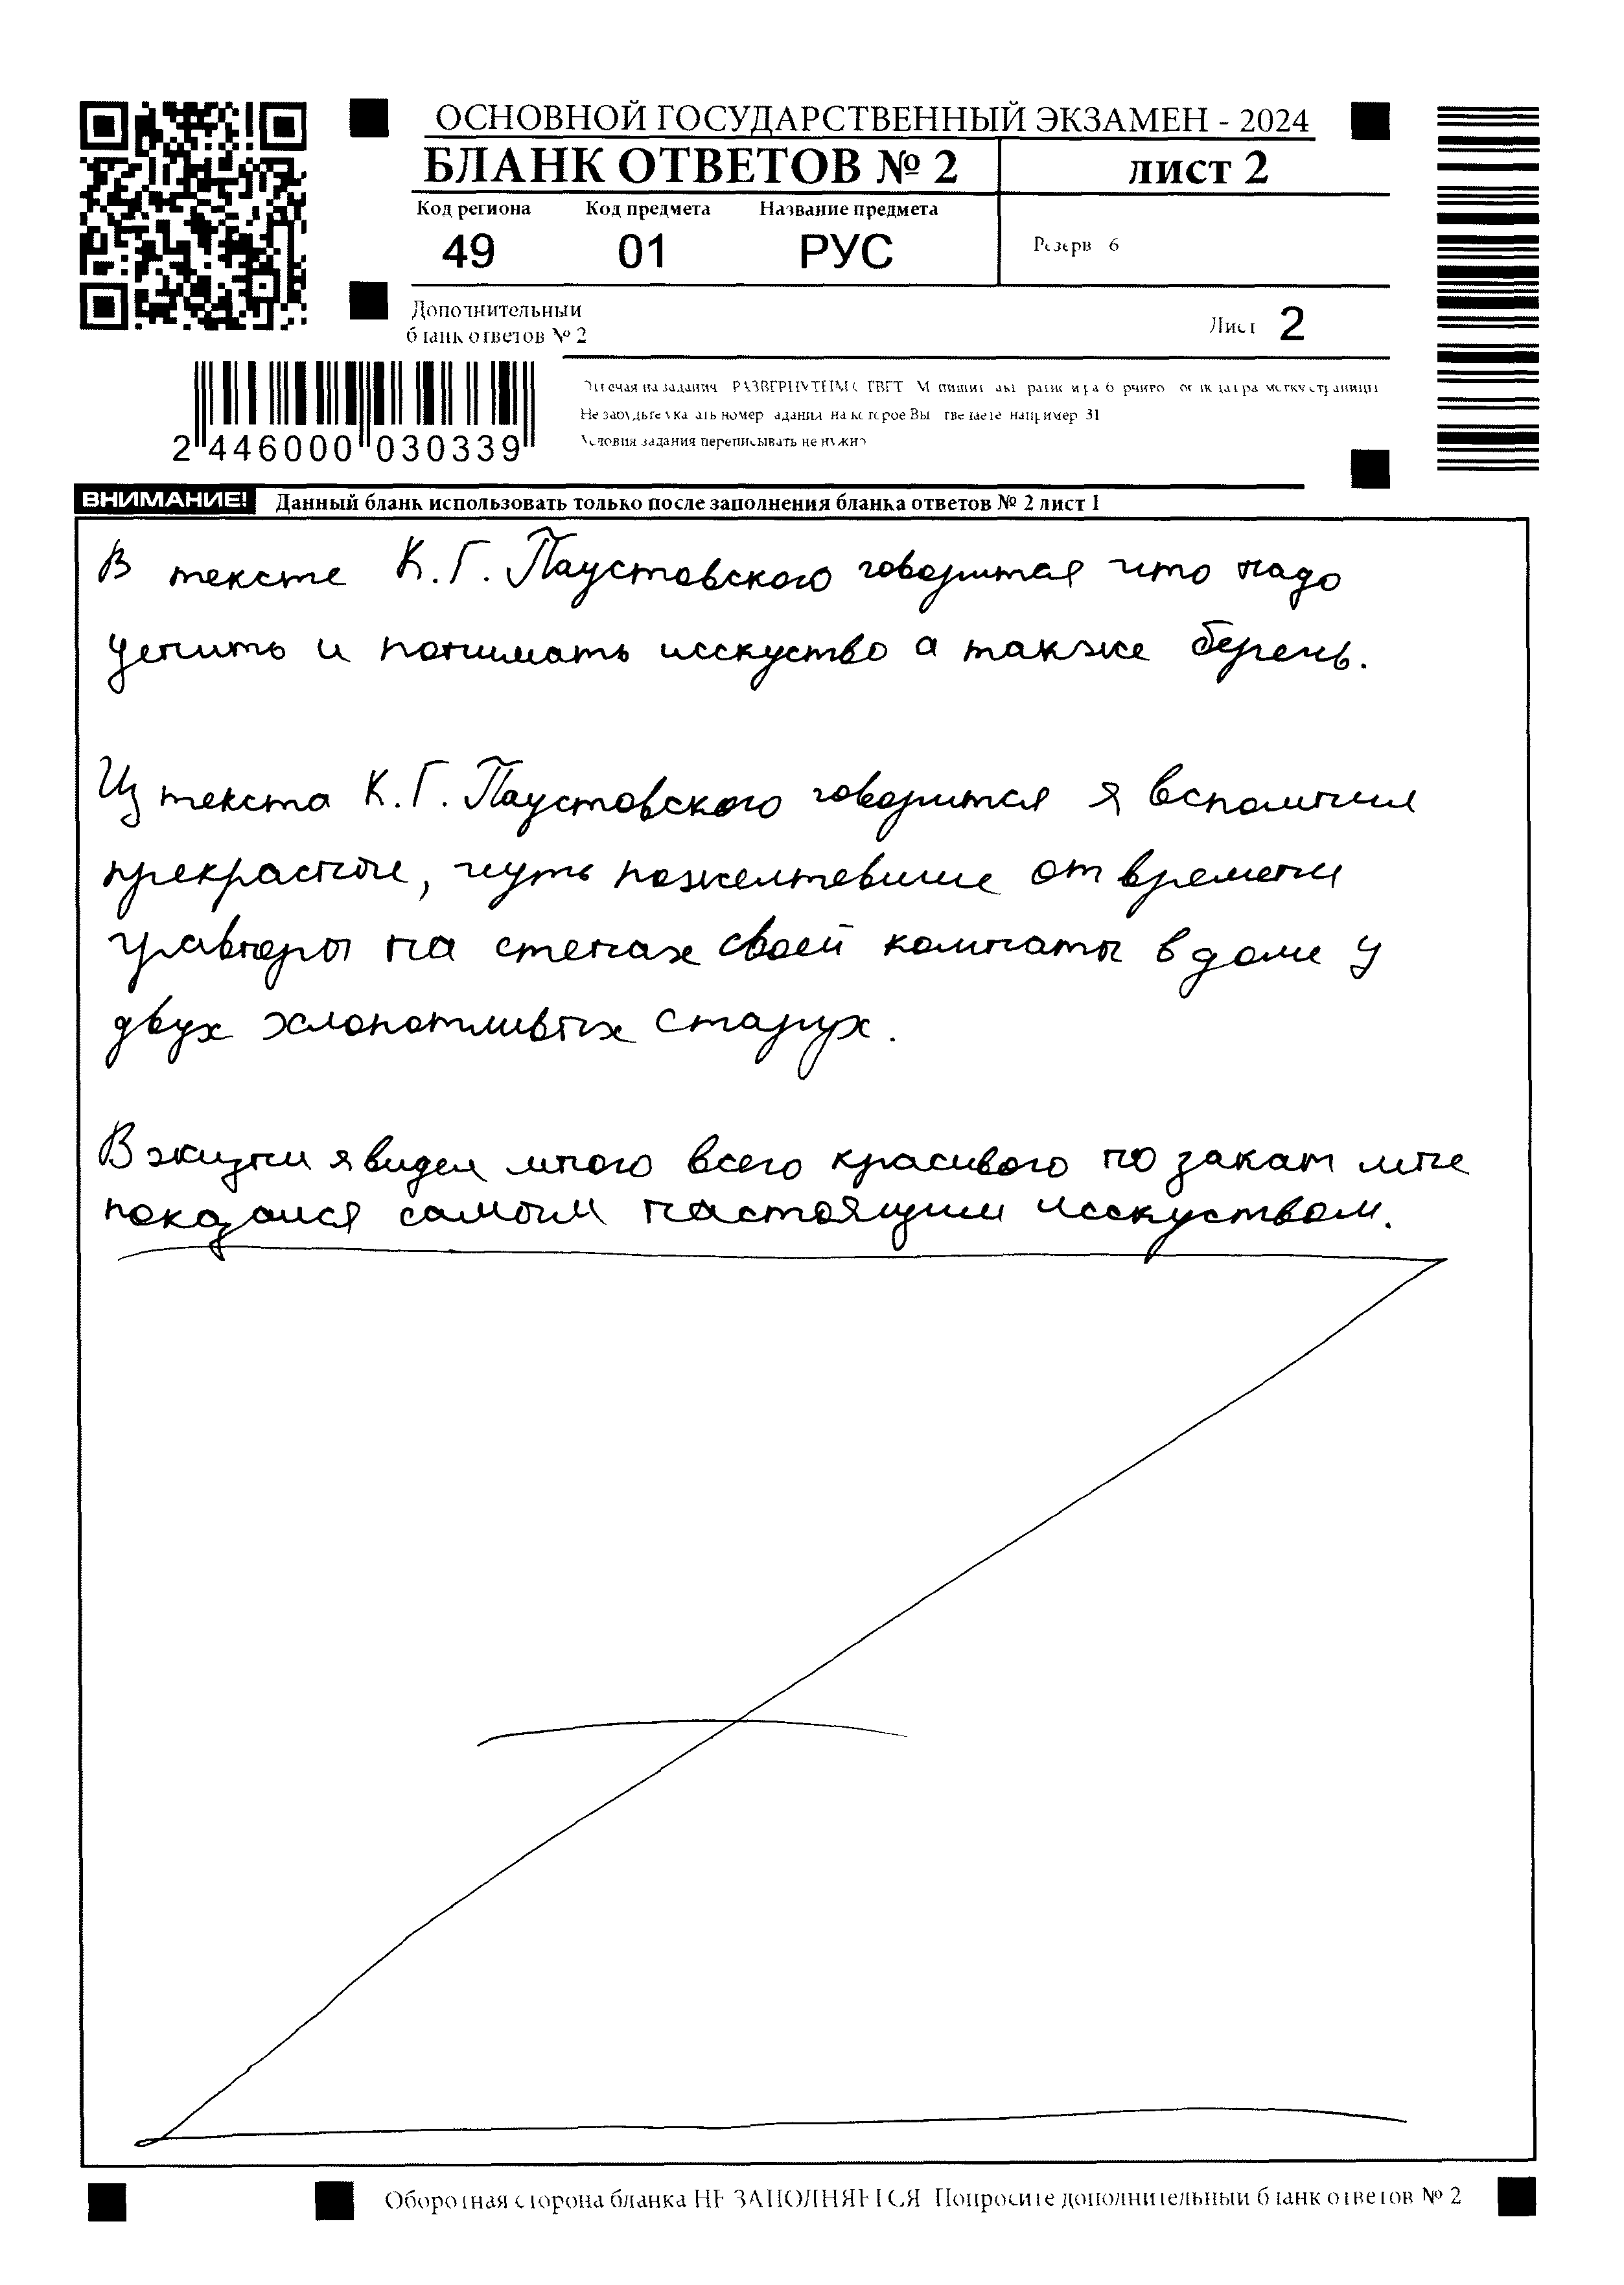 ОСНОВНОЙ ГОСУДАРСТВЕННЫЙ ЭКЗАМЕН - 2024
БЛАНК ОТВЕТОВ № 2
лист 2
Код региона Код предмета Название предмета
49 01 РУС
Резерв 6
Дополнительный
бланк ответов № 2
Лист 2
2 446000 030339
Не забудьте указать номер задания на которое Вы отвечаете например 31
Условия задания переписывать не нужно
ВНИМАНИЕ! Данный бланк использовать только после заполнения бланка ответов № 2 лист 1
В тексте К.Г. Паустовского говорится что надо
ценить и понимать исскуство а также беречь.
Из текста К.Г. Паустовского говорится я вспомнил
прекрасные, чуть пожелтевшие от времени
гравюры на стенах своей комнаты в доме у
двух хлопотливых старух.
В жизни я видел много всего красивого но закат мне
показался самым настоящим исскуством.
Оборотная сторона бланка НЕ ЗАПОЛНЯЕТСЯ Попросите дополнительный бланк ответов № 2